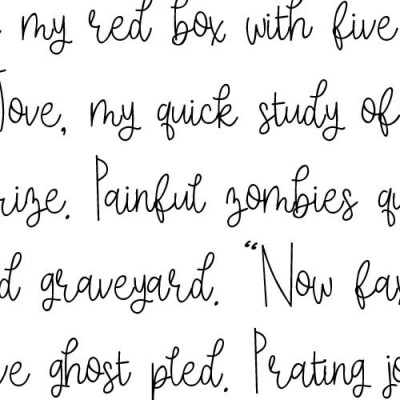 my red box with five
Jove, my quick study of
rize. Painful zombies qu
d graveyard. “Now fas
ve ghost pled. Prating jo